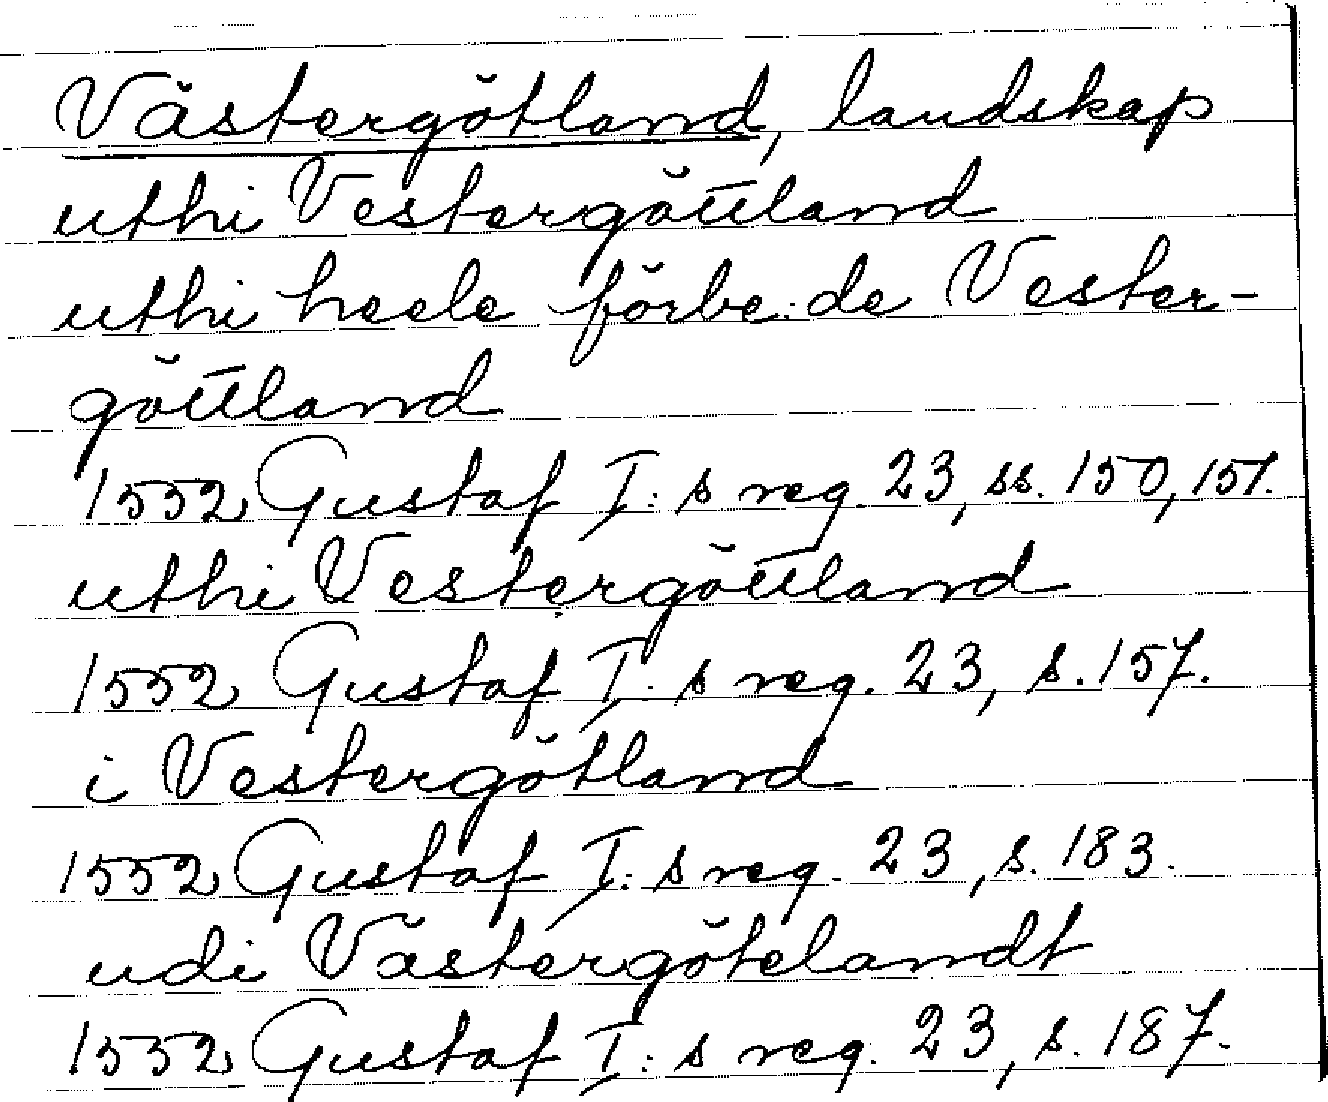 Västergötland, landskap
uthi Vestergöttland
uthi heele förbe:de Vester-
göttland
1552 Gustaf I:s reg. 23, ss. 150, 151.
uthi Vestergöttland
1552 Gustaf I:s reg. 23, s. 157.
i Vestergötland
1552 Gustaf I:s reg. 23, s. 183.
udi Västergötelandt
1552 Gustaf I:s reg. 23, s. 187.